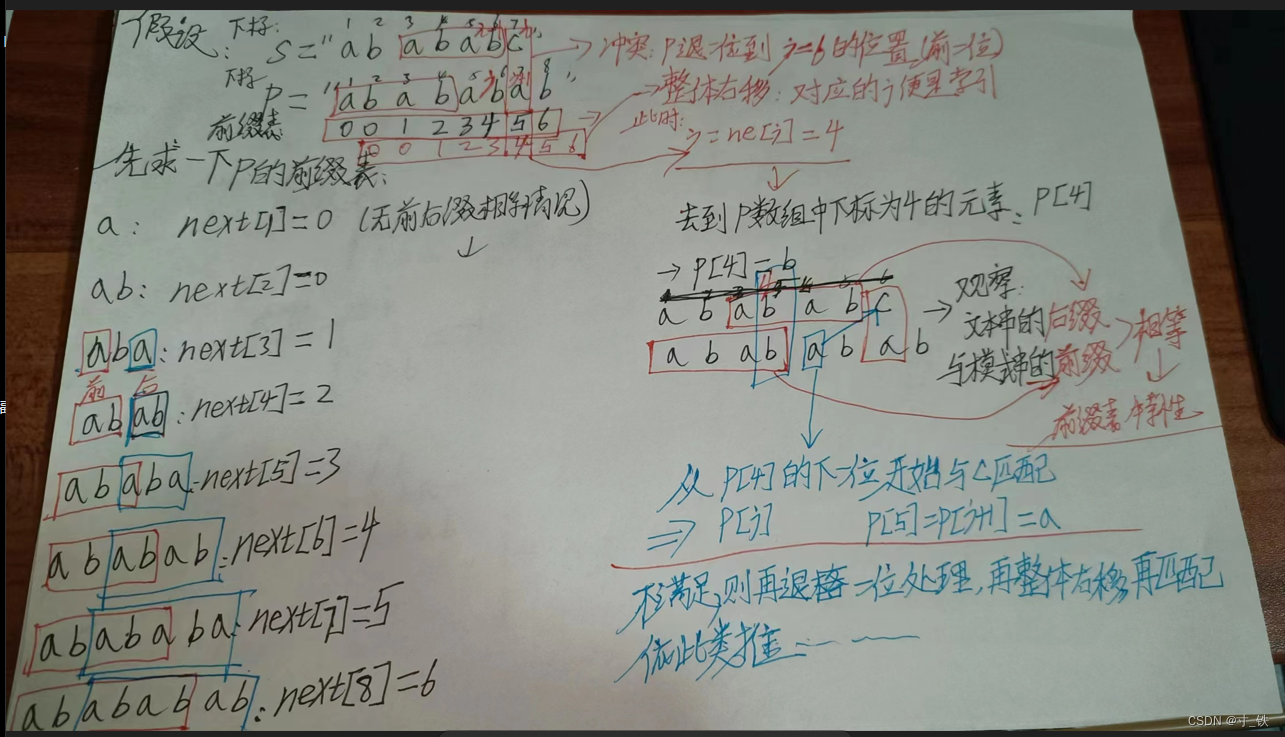 假设: 下标: 1 2 3 4 5 6 7
S="ab ababc"
下标 1 2 3 4 5 6 7 8
P="abababab"
前缀表 0 0 1 2 3 4 5 6
0 0 1 2 3 4 5 6
先求一下P的前缀表:
a: next[1]=0 (无前后缀相等情况)
ab: next[2]=0
aba: next[3]=1
前 后
abab: next[4]=2
ababa: next[5]=3
ababab: next[6]=4
abababa: next[7]=5
abababab: next[8]=6
→冲突: P退一位到j=6的位置(前一位)
→整体右移: 对应的j便是索引
此时:
j=ne[j]=4
去到P数组中下标为4的元素: P[4]
→P[4]=b
a b a b a b c
a b a b a b a b
→观察:
文本串的后缀
与模式串的前缀
相等
前缀表特性
从P[4]的下一位开始与C匹配
⇒ P[j] P[5]=P[j+1]=a
不满足,则再退一位处理,再整体右移,再匹配
依此类推:……
CSDN @寸_铁